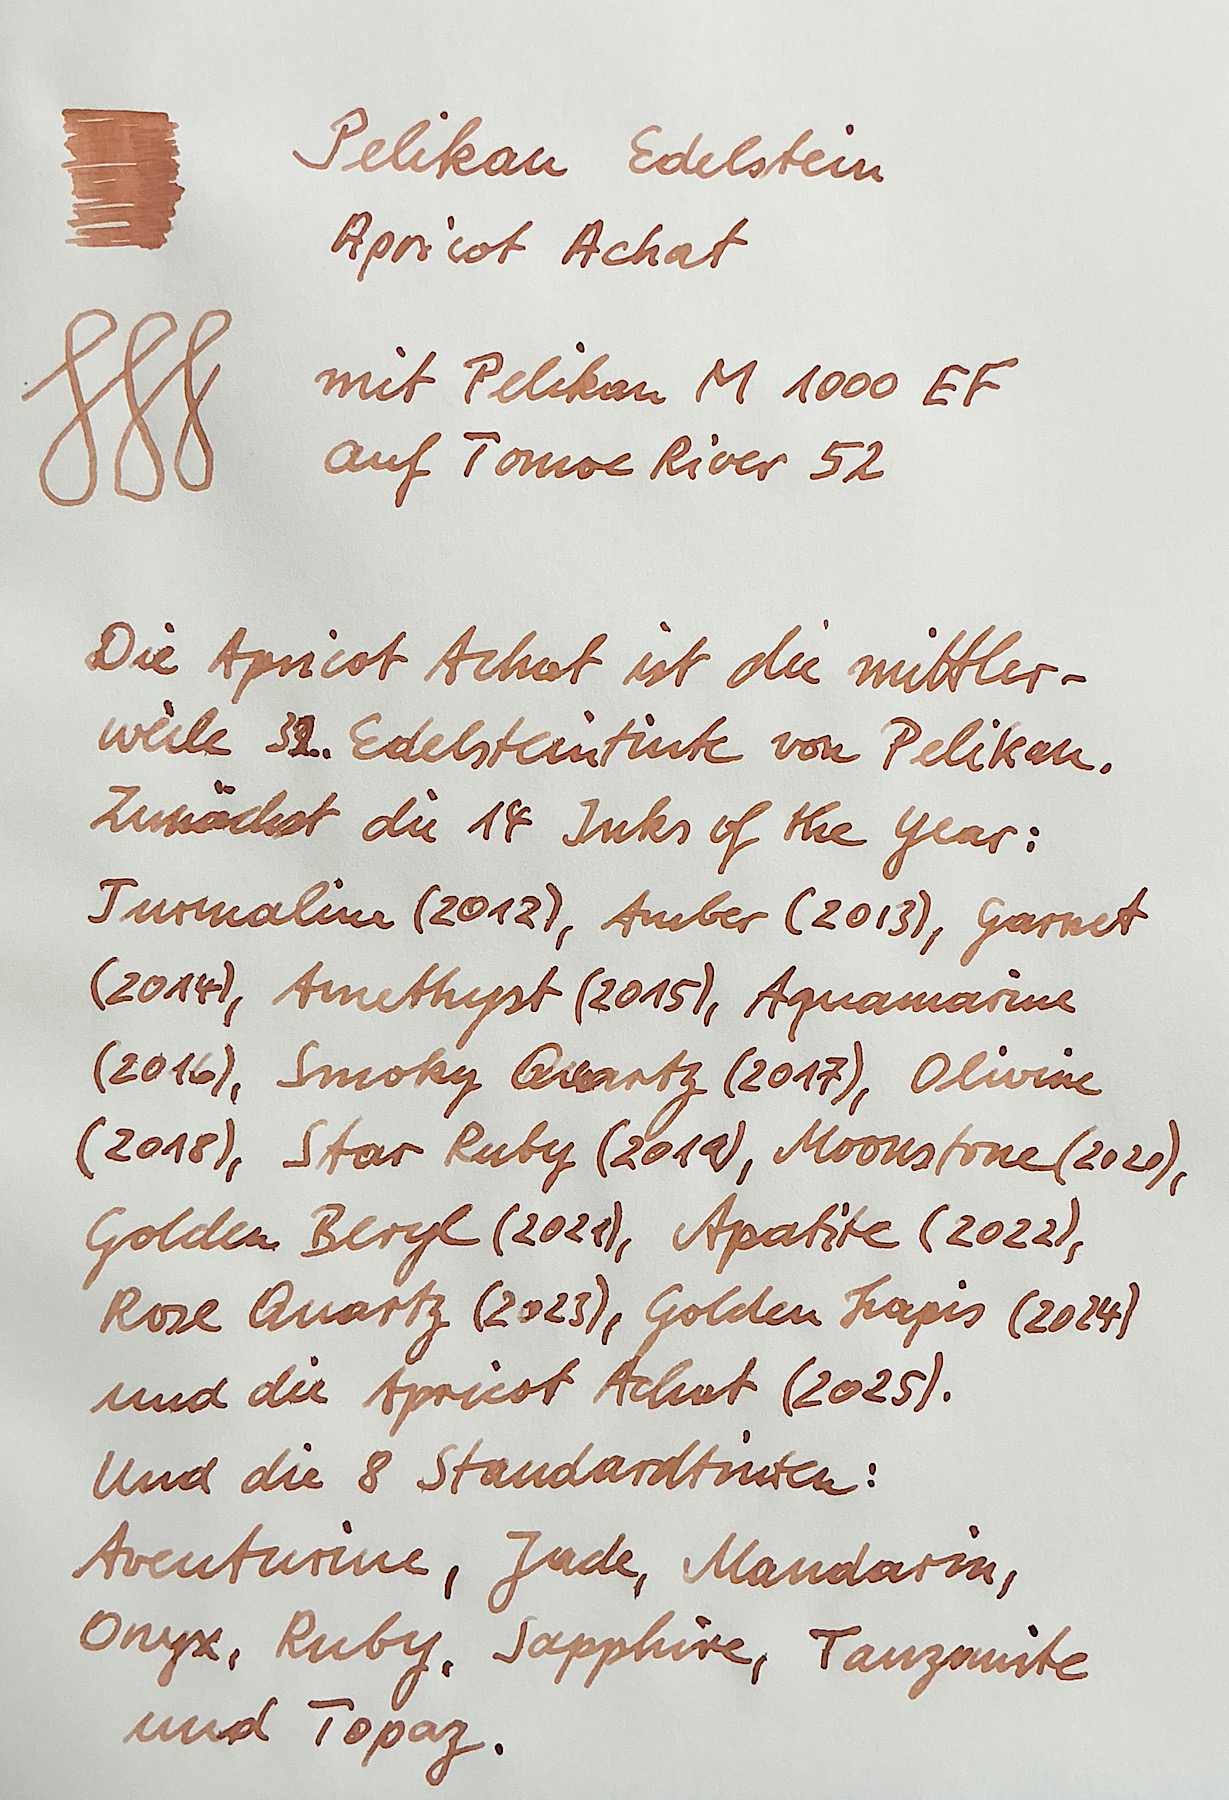 Pelikan Edelstein
Apricot Achat
mit Pelikan M 1000 EF
auf Tomoe River 52
Die Apricot Achat ist die mittler-
weile Edelsteintinte von Pelikan.
Zunächst die 14 Inks of the Year:
Turmaline (2012), Amber (2013), Garnet
(2014), Amethyst (2015), Aquamarine
(2016), Smoky Quartz (2017), Olivine
(2018), Star Ruby (2019), Moonstone (2020),
Golden Beryl (2021), Apatite (2022),
Rose Quartz (2023), Golden Lapis (2024)
und die Apricot Achat (2025).
Und die 8 Standardtinten:
Aventurine, Jade, Mandarin,
Onyx, Ruby, Sapphire, Tanzanite
und Topaz.